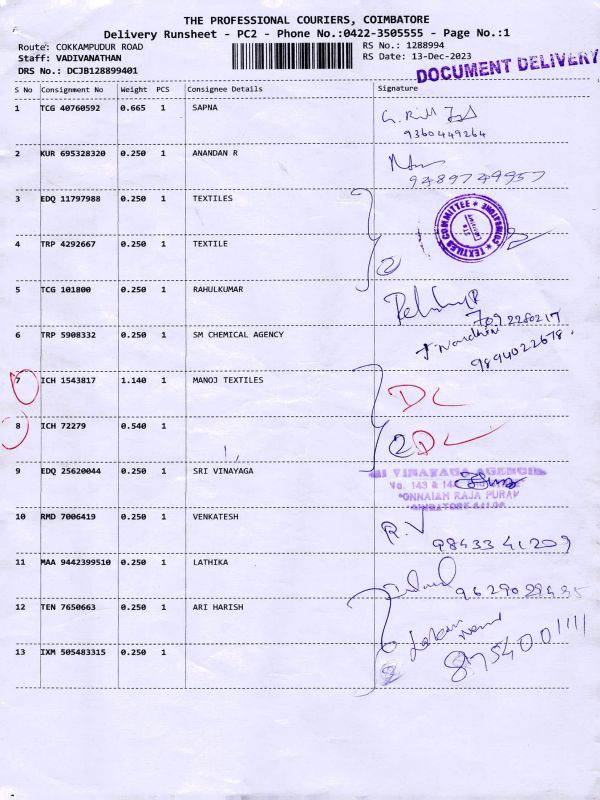 THE PROFESSIONAL COURIERS, COIMBATORE
Delivery Runsheet - PC2 - Phone No.:0422-3505555 - Page No.:1
Route: COKKAMPUDUR ROAD
RS No.: 1288994
Staff: VADIVANATHAN
RS Date: 13-Dec-2023
DRS No.: DCJB128899401
DOCUMENT DELIVERY
S No Consignment No Weight PCS Consignee Details Signature
1 TCG 40760592 0.665 1 SAPNA
9360449264
2 KUR 695328320 0.250 1 ANANDAN R
9489749957
3 EDQ 11797988 0.250 1 TEXTILES
TEXTILES COMMITTEE
4 TRP 4292667 0.250 1 TEXTILE
2
5 TCG 101800 0.250 1 RAHULKUMAR
709 2280217
6 TRP 5908332 0.250 1 SM CHEMICAL AGENCY
9894022678
7 ICH 1543817 1.140 1 MANOJ TEXTILES
DL
8 ICH 72279 0.540 1
2 DL
9 EDQ 25620044 0.250 1 SRI VINAYAGA
VINAYAGA AGENCIE
No. 143 & 14
ONNAIAH RAJA PURAM
10 RMD 7006419 0.250 1 VENKATESH
R.V
98433 41209
11 MAA 9442399510 0.250 1 LATHIKA
9629029435
12 TEN 7650663 0.250 1 ARI HARISH
13 IXM 505483315 0.250 1
8754001111